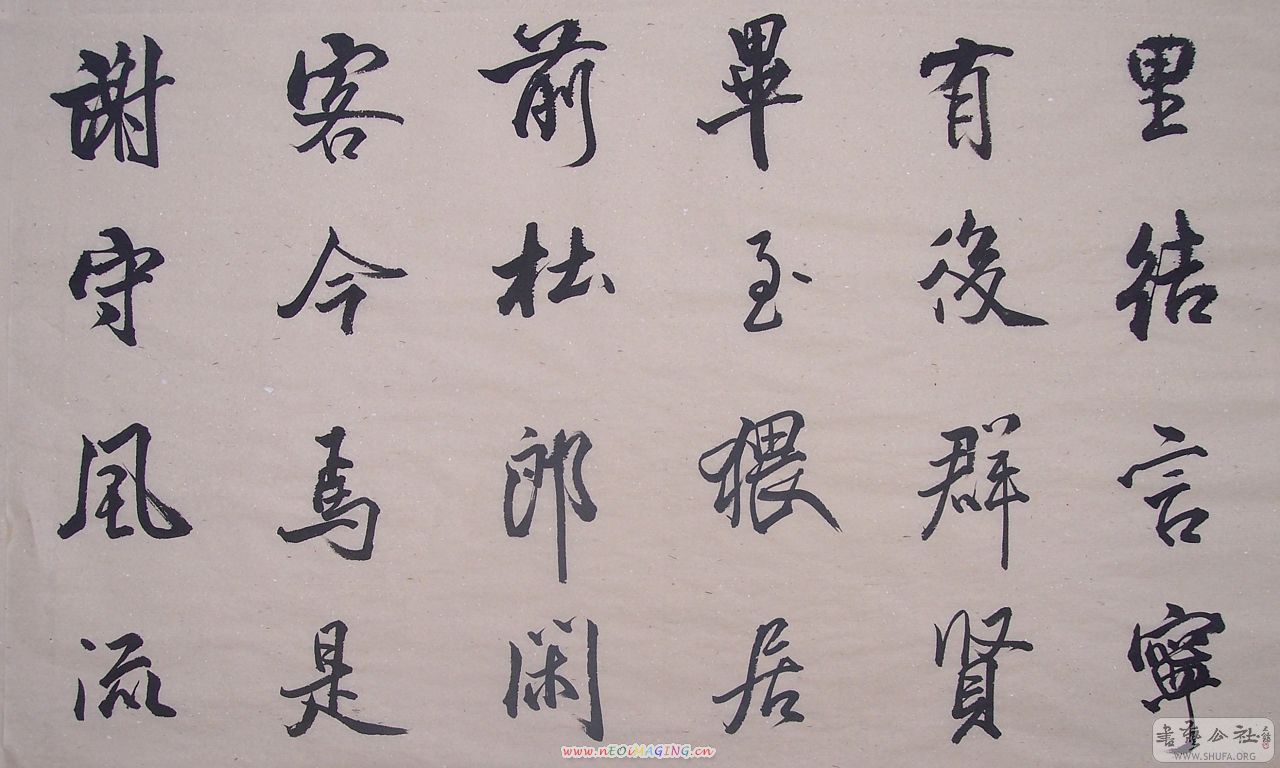 里結言寧
有後群賢
畢至猥居
前杜郎閑
客今焉是
謝守風流
www.nEOiMAGING.cn
書藝公社
WWW.SHUFA.ORG